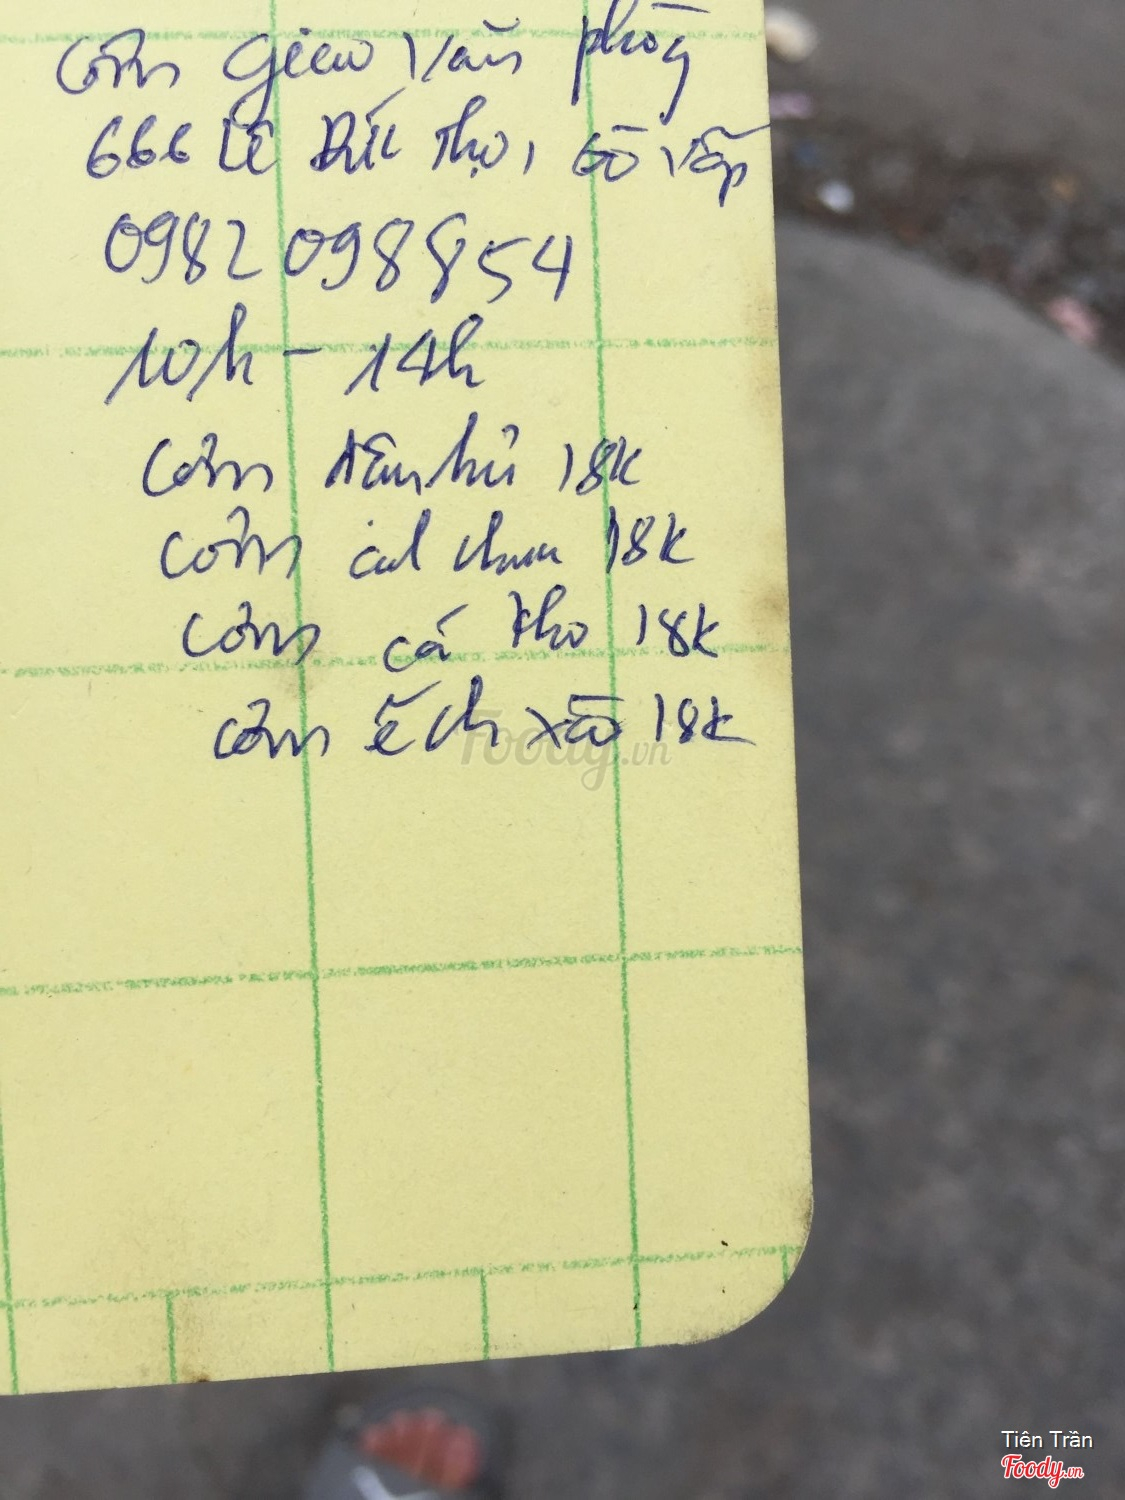 cơm giao văn phòng
666 Lê Đức Thọ, Gò Vấp
0982 098854
10h - 14h
cơm đậu hủ 18k
cơm canh chua 18k
cơm cá kho 18k
cơm ếch xào 18k
Foody.vn
Tiên Trần
Foody.vn